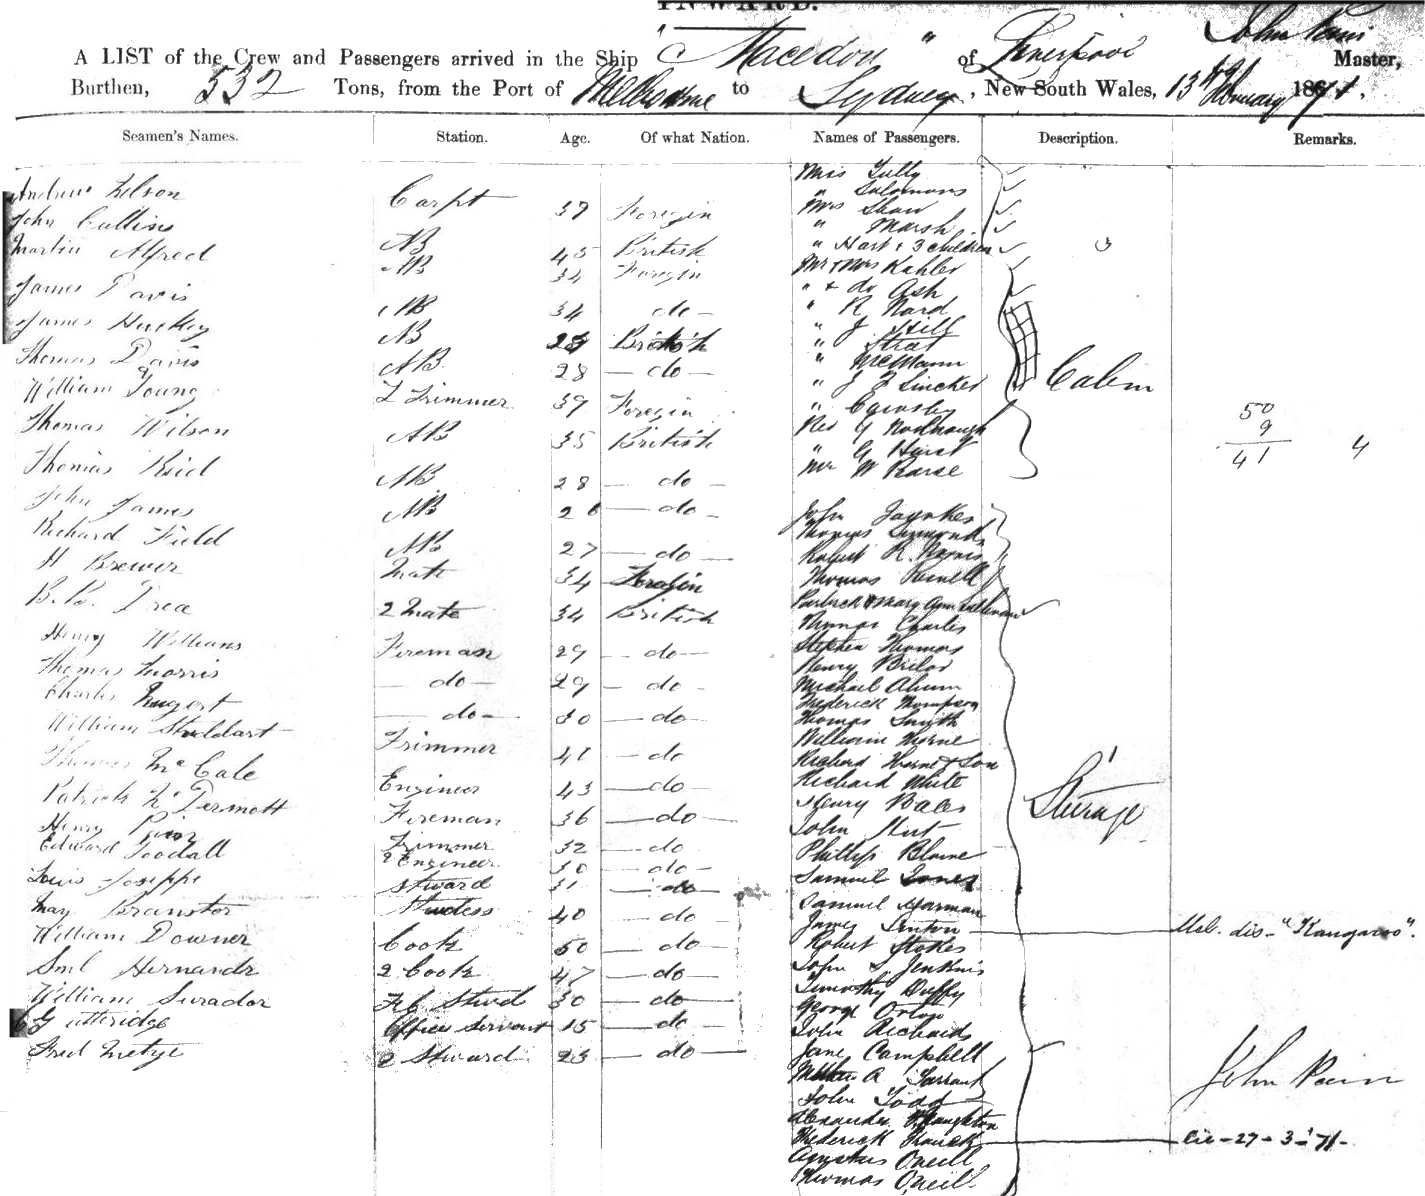 INWARD.
A LIST of the Crew and Passengers arrived in the Ship "Macedon" of Liverpool John Master,
Burthen, 532 Tons, from the Port of Melbourne to Sydney, New South Wales, 13th February 1871.
Seamen's Names. Station. Age. Of what Nation. Names of Passengers. Description. Remarks.
Andrew Nelson Carpt 39 Foregin
John Cullins AB 45 British
Martin Alfred AB 34 Foregin
James Davis AB 34 do
James Huckey AB 28 British
Thomas Davis AB 28 do
William Young L Trimmer 39 Foregin
Thomas Wilson AB 35 British
Thomas Reid AB 28 do
John James AB 28 do
Richard Field AB 27 do
H Brewer Mate 34 Foregin
B. B. Drea 2 Mate 34 British
Henry Williams Fireman 29 do
Thomas Morris do 29 do
Charles Nugent do 30 do
William Studdart Trimmer 41 do
Thomas McCale Engineer 43 do
Patrick McDermott Fireman 36 do
Henry Trimmer 32 do
Edward Goodall 2 Engineer 30 do
Louis Joseppe Steward 31 do
May Branster Studess 40 do
William Downer Cook 50 do
Sml Hernandz 2 Cook 47 do
William Surador Stwd 30 do
G uttridge Officers Servant 15 do
Fred Metye 2 Steward 23 do
Miss Tully
" Salomons
Mrs Shaw
" Marsh
" Hart & 3 children 3
Mr & Mrs Kahler
" & do Ash
" R Nard
" J Hill
" Strat
" McMann
" J F Sincker
"
Rev G Woolnough
" G Hurst
Mr W Rarse
Cabin
50
9
41
4
John
Thomas Simmonds
Robert R. Norris
Thomas Powell
Patrick & Mary Ann Sullivan
Thomas Charles
Stephen Thomas
Henry
Michael Ahern
Frederick Thompson
Thomas Smyth
William Horne
Richard Horne & Son
Richard White
Henry Bales
John
Phillip Blaine
Samuel Jones
Samuel Harman
James Linton Mel. dis-"Kangaroo".
Robert Stokes
John S Jenkins
Timothy Duffy
George Orton
John Richards
Jane Campbell
A Tarrant
John Todd
Alexander Naughton
Frederick 27-3-71-
Agustus Oneill
Thomas Oneill
Sturage
John